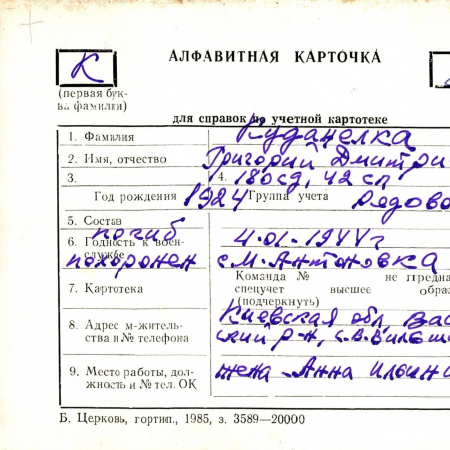 К
АЛФАВИТНАЯ КАРТОЧКА
(первая бук-
ва фамилии)
для справок по учетной картотеке
1. Фамилия Куданелка
2. Имя, отчество Григорий Дмитри
3. 4. 180сд, 42 сп
Год рождения 1924 Группа учета Рядово
5. Состав
погиб
6. Годность к воен- 4.01-1944г
службе
похоронен с. М. Антоновка
Команда № не предна
7. Картотека спецучет высшее образ
(подчеркнуть)
8. Адрес м-житель- Киевская обл, Вас
ства и № телефона ский р-н, с. В.
9. Место работы, дол- жена - Анна
жность и № тел. ОК
Б. Церковь, гортип., 1985, з. 3589—20000